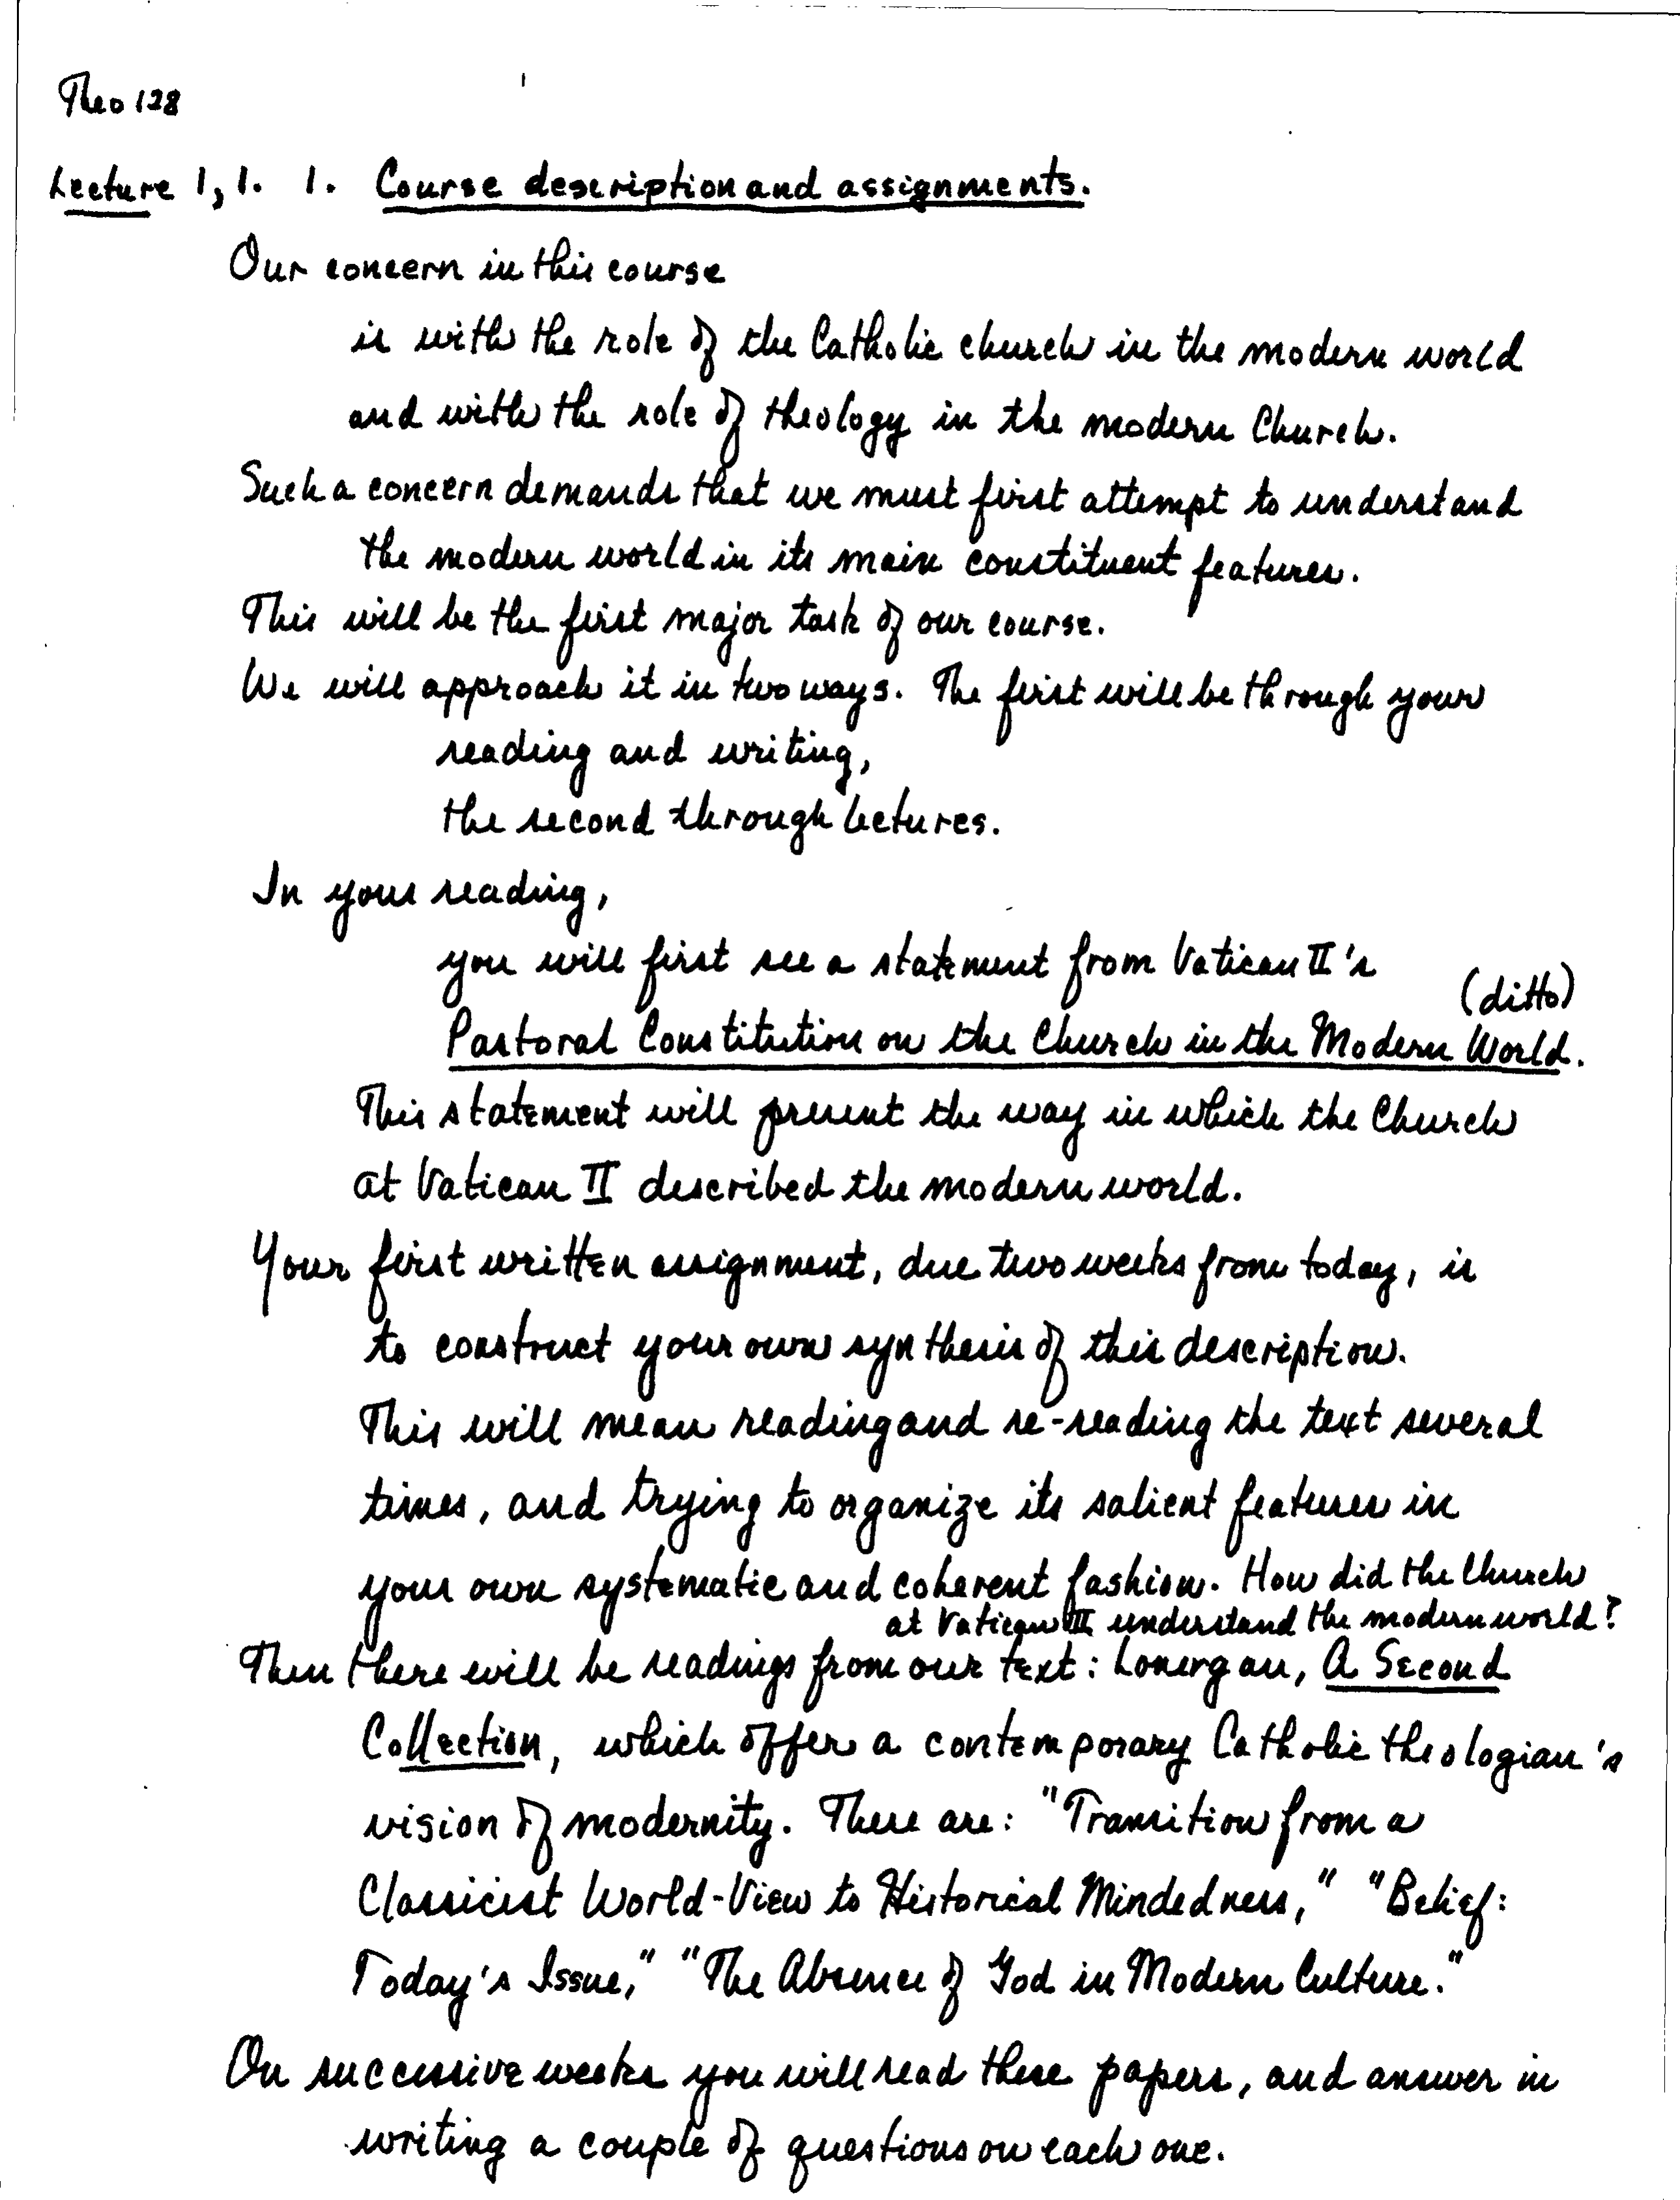 Theo 128
Lecture 1, 1. 1. Course description and assignments.
Our concern in this course
is with the role of the Catholic church in the modern world
and with the role of theology in the modern Church.
Such a concern demands that we must first attempt to understand
the modern world in its main constituent features.
This will be the first major task of our course.
We will approach it in two ways. The first will be through your
reading and writing,
the second through lectures.
In your reading,
you will first see a statement from Vatican II's
(ditto)
Pastoral Constitution on the Church in the Modern World.
This statement will present the way in which the Church
at Vatican II described the modern world.
Your first written assignment, due two weeks from today, is
to construct your own synthesis of this description.
This will mean reading and re-reading the text several
times, and trying to organize its salient features in
your own systematic and coherent fashion. How did the Church
at Vatican II understand the modern world?
Then there will be readings from our text: Lonergan, A Second
Collection, which offer a contemporary Catholic theologian's
vision of modernity. These are: "Transition from a
Classicist World-View to Historical Mindedness," "Belief:
Today's Issue," "The Absence of God in Modern Culture."
On successive weeks you will read these papers, and answer in
writing a couple of questions on each one.